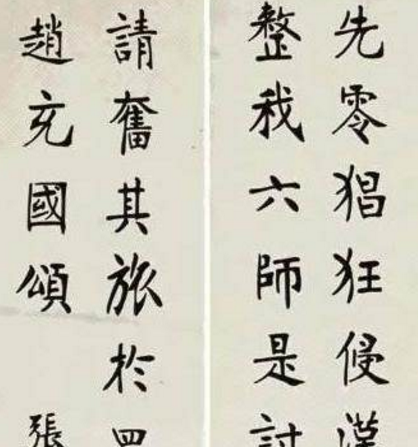 先零猖狂侵漢
整我六師是討
請奮其旅於罒
趙充國頌 張